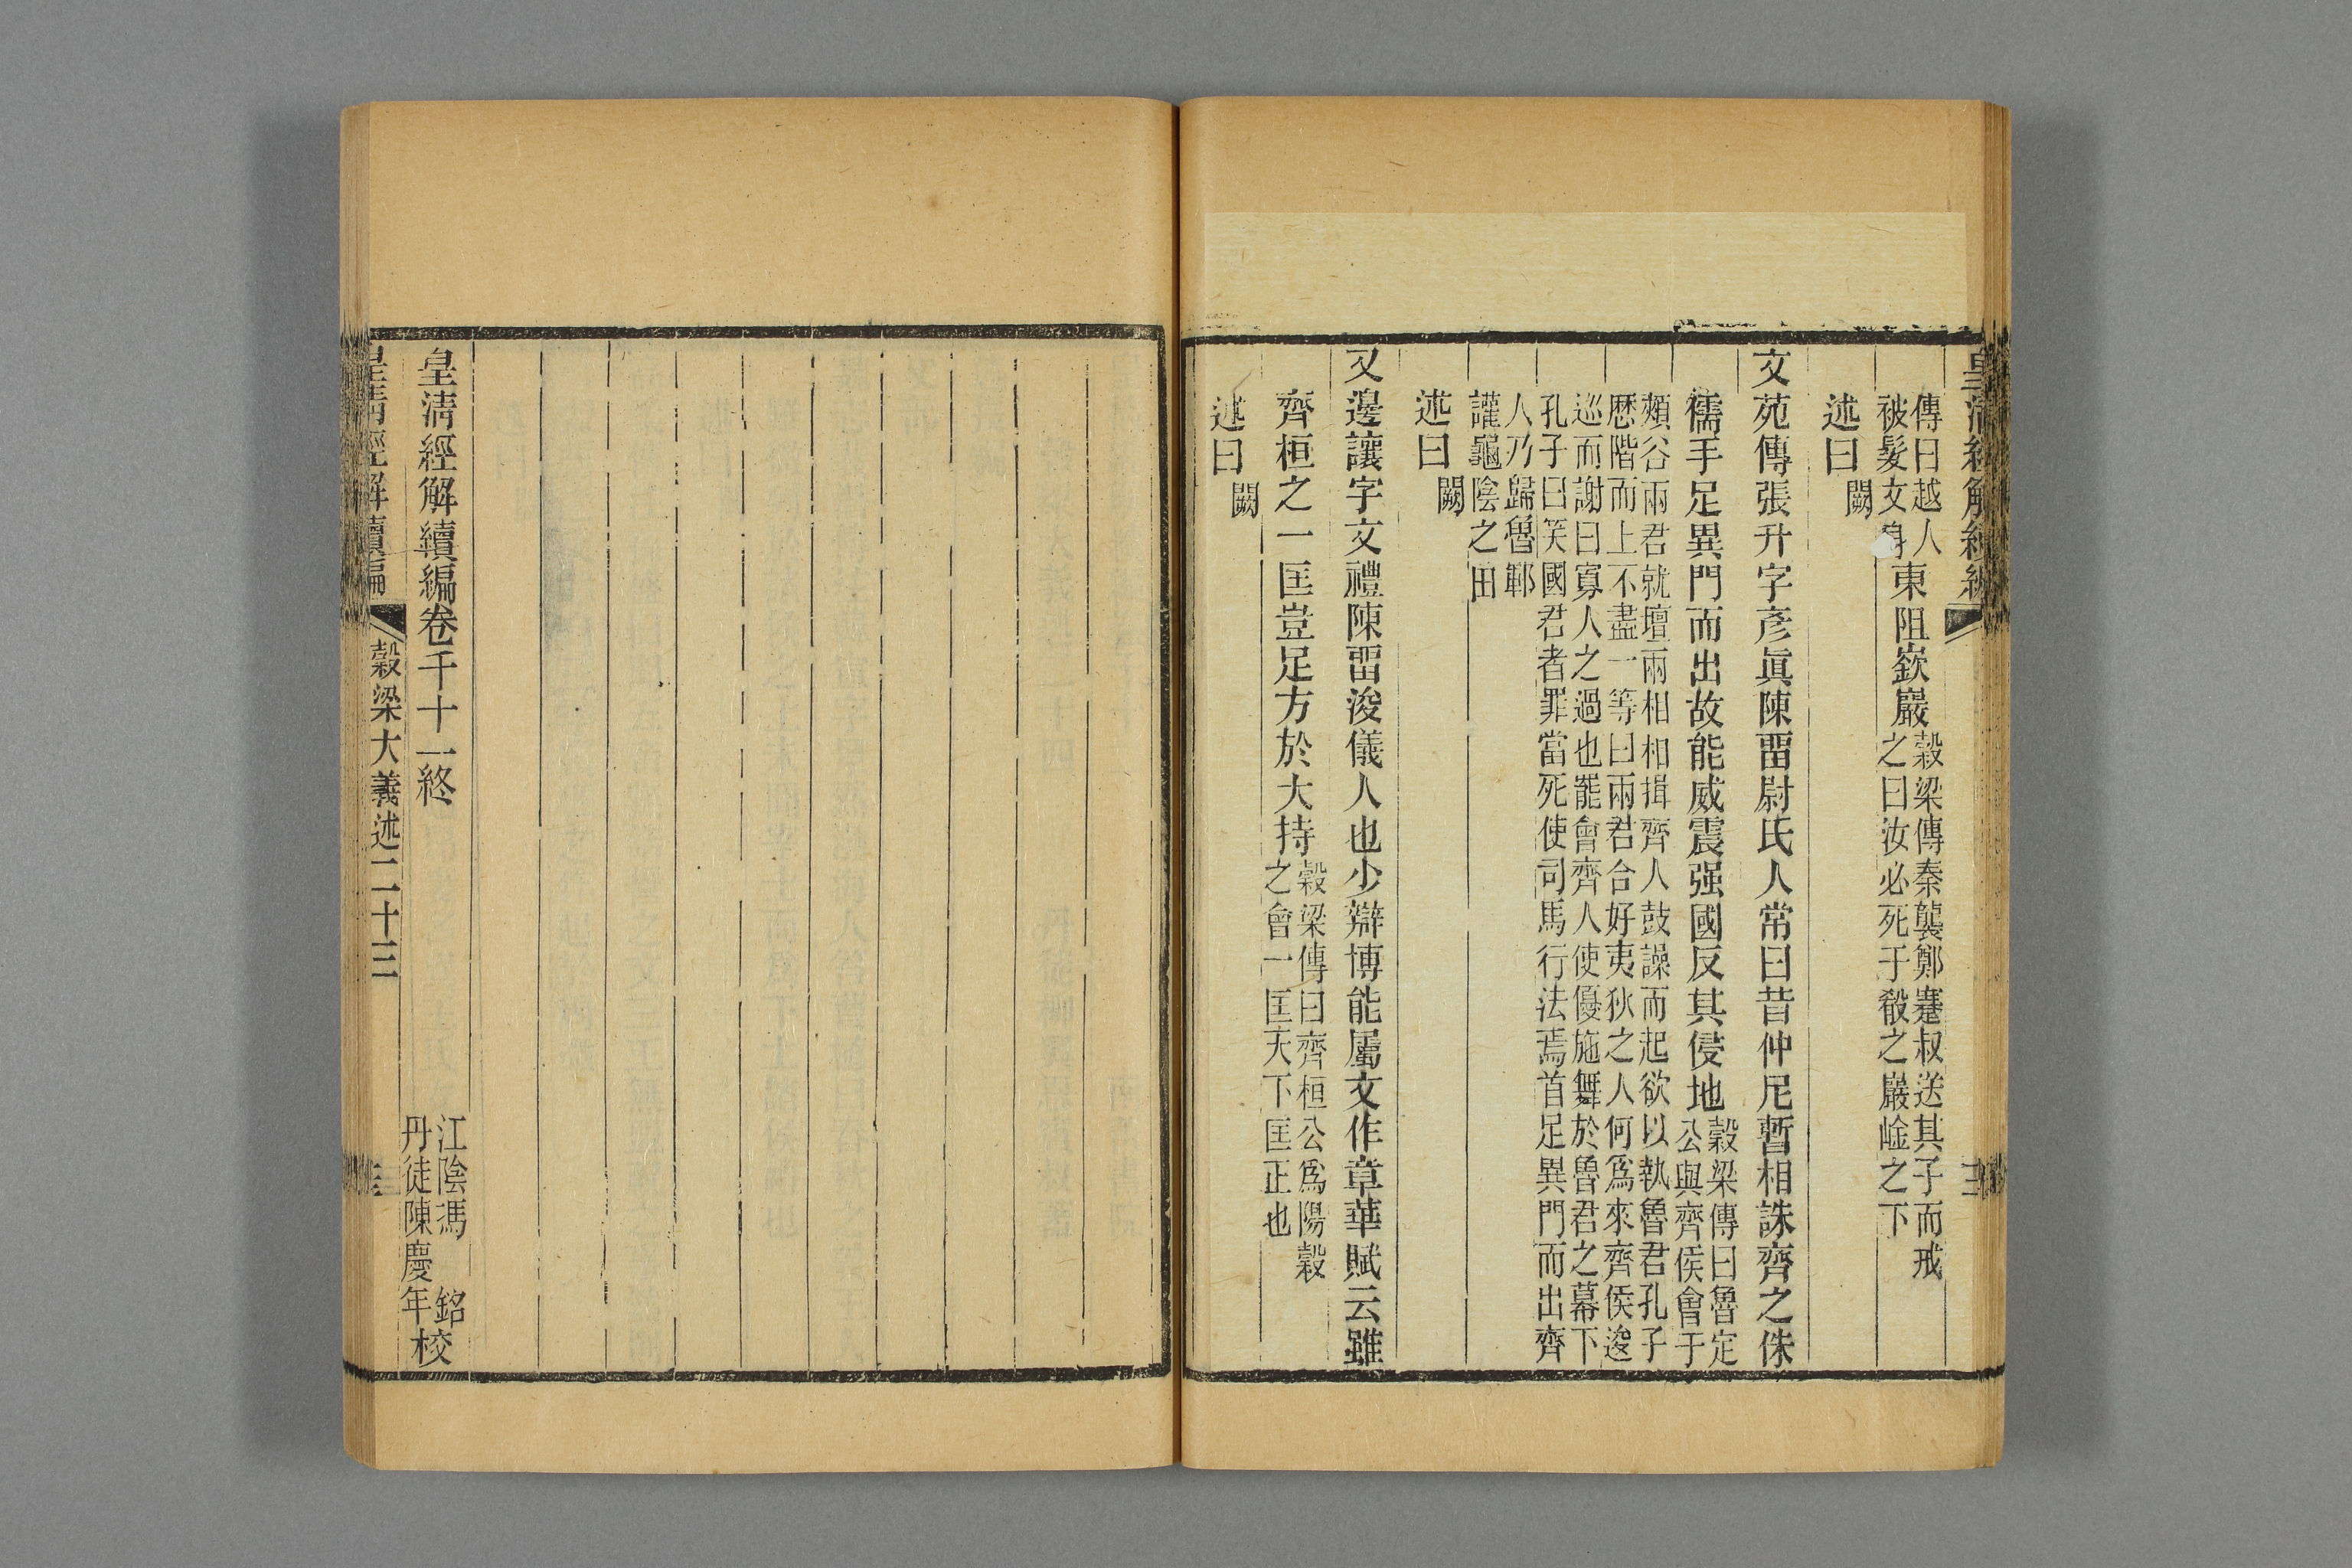 皇清經解續編
傳曰越人
被髮文身東阻嶔巖穀梁傳秦襲鄭蹇叔送其子而戒
之曰汝必死于殽之巖崯之下
述曰闕
文苑傳張升字彥眞陳畱尉氏人常曰昔仲尼暫相誅齊之侏
儒手足異門而出故能威震强國反其侵地穀梁傳曰魯定
公與齊侯會于
頰谷兩君就壇兩相相揖齊人鼓譟而起欲以執魯君孔子
歷階而上不盡一等曰兩君合好夷狄之人何爲來齊侯逡
巡而謝曰寡人之過也罷會齊人使優施舞於魯君之幕下
孔子曰笑國君者罪當死使司馬行法焉首足異門而出齊
人乃歸魯鄆
讙龜陰之田
述曰闕
又邊讓字文禮陳畱浚儀人也少辯博能屬文作章華賦云雖
齊桓之一匡豈足方於大持穀梁傳曰齊桓公爲陽穀
之會一匡天下匡正也
述曰闕
皇清經解續編卷千十一終
江陰馮銘
丹徒陳慶年校
皇清經解續編
穀梁大義述二十三